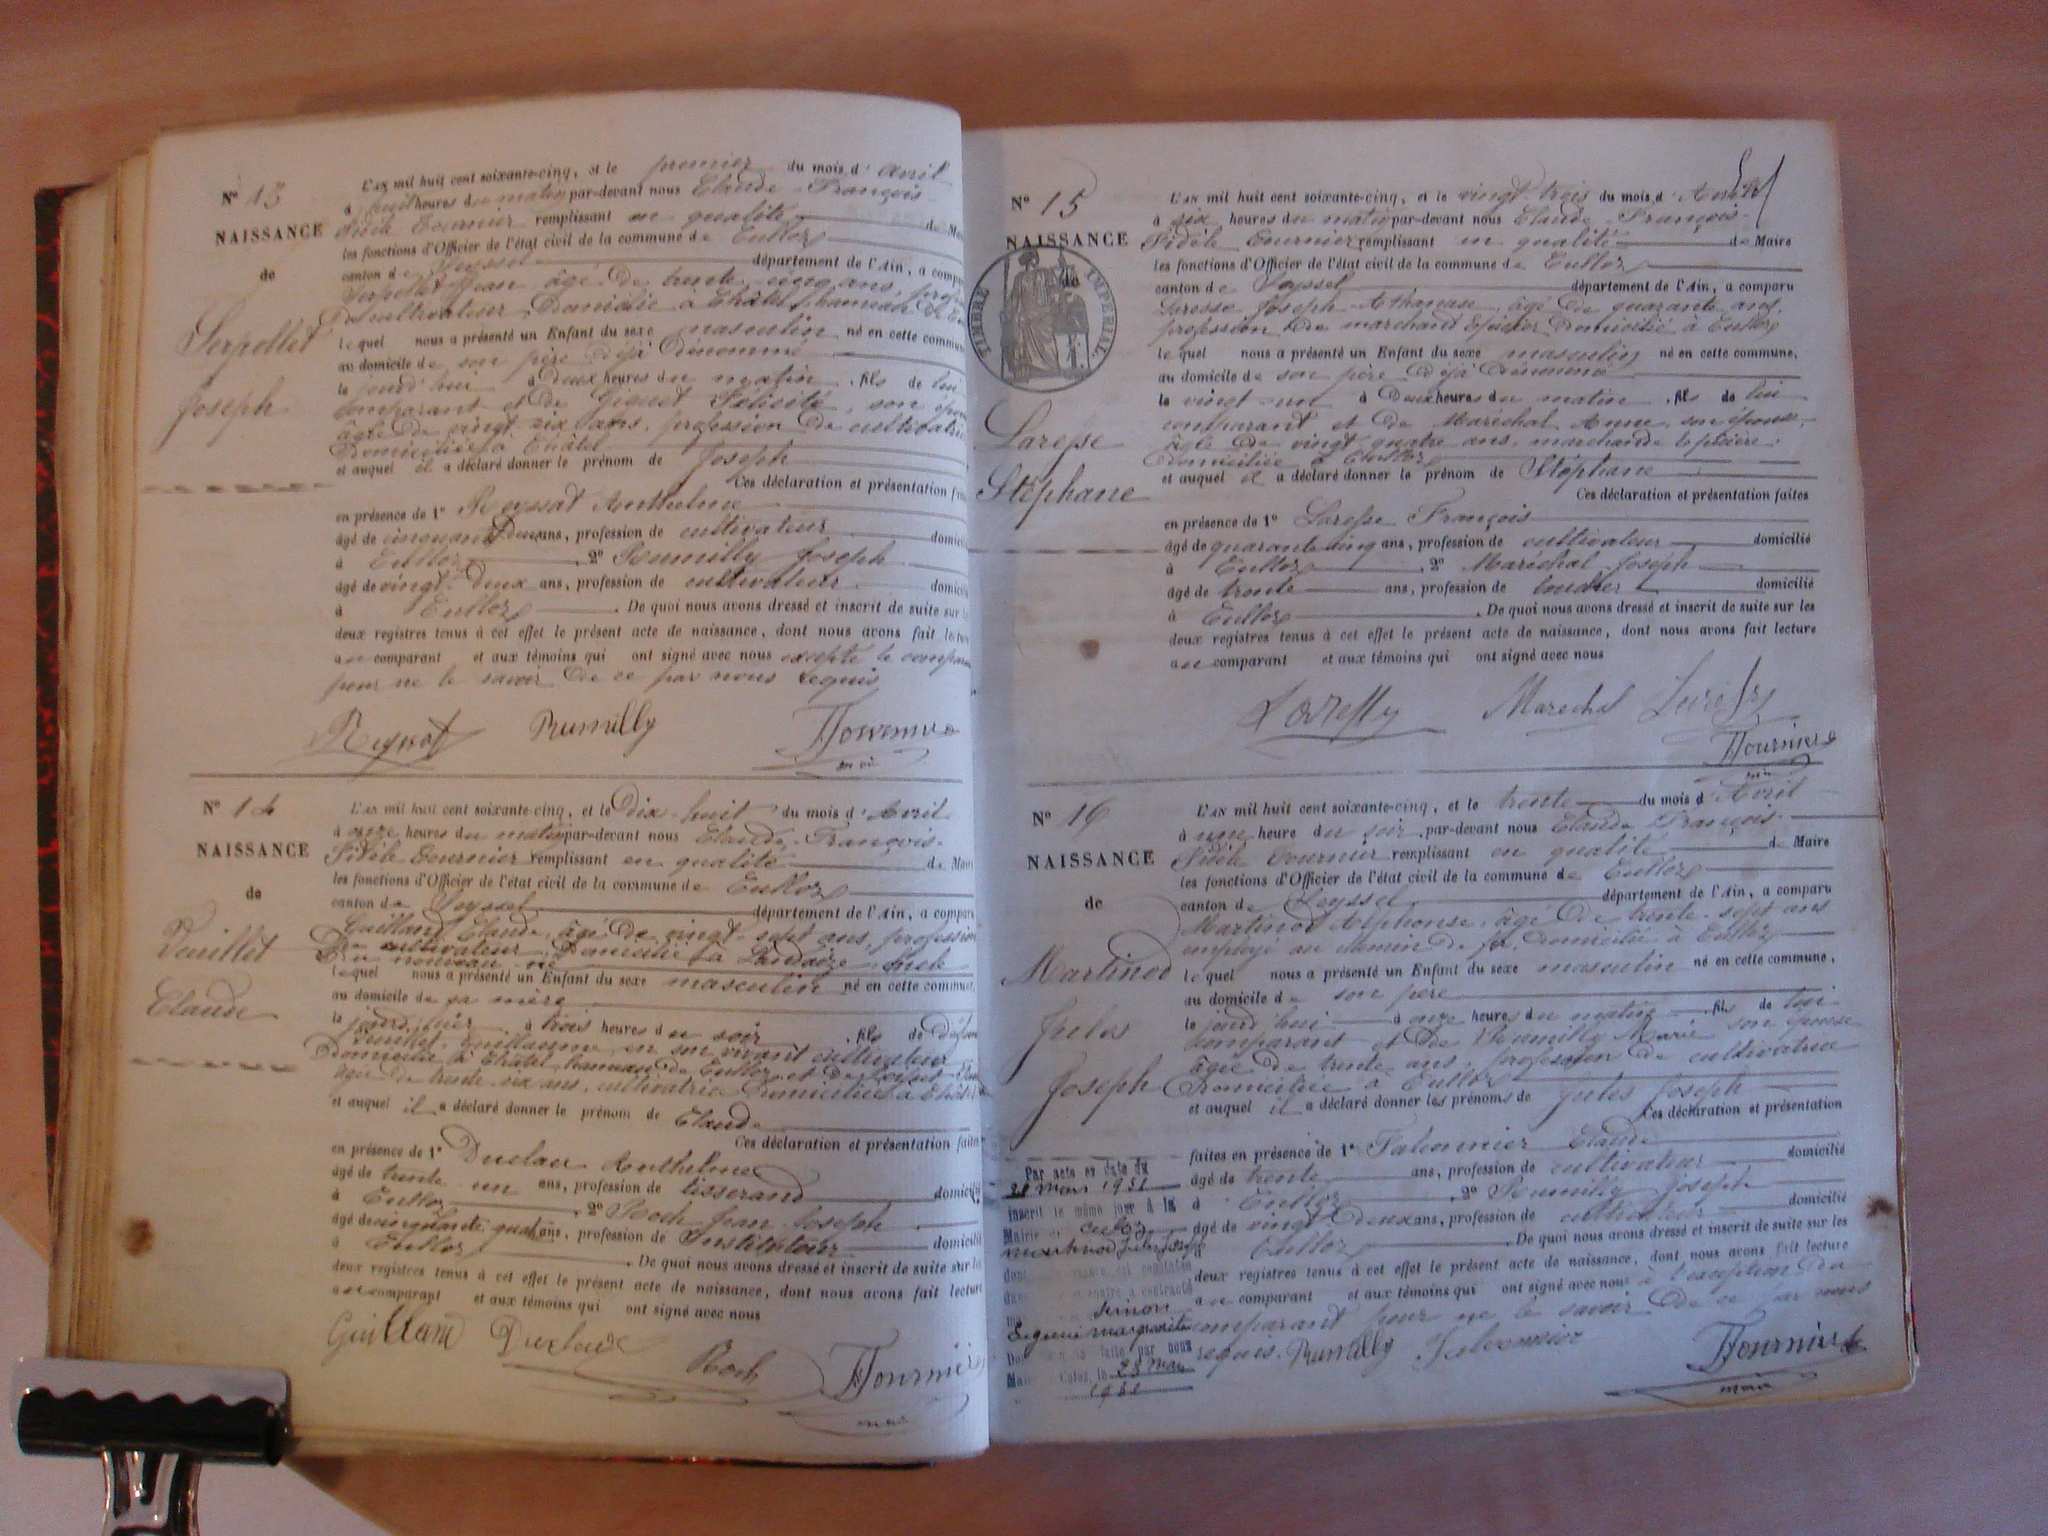 N° 13
NAISSANCE
de
Serpollet
Joseph
L'AN mil huit cent soixante-cinq, et le premier du mois d'avril
à huit heures du matin par-devant nous Claude-François
Fidèle Fournier remplissant en qualité de
les fonctions d'Officier de l'état civil de la commune de Culloz
canton de Seyssel département de l'Ain, a compa
Serpollet Jean âgé de trente cinq ans, profes
cultivateur domicilié à Châtel, hameau de
lequel nous a présenté un Enfant du sexe masculin né en cette commune
au domicile de son père déjà dénommé
le jourd'hui à deux heures du matin, fils de lui
comparant et de Félicité, son épouse
âgée de vingt six ans, profession de cultivatrice
domiciliée à Châtel
et auquel il a déclaré donner le prénom de Joseph
Ces déclaration et présentation
en présence de 1° Reyssat Anthelme
âgé de cinquante deux ans, profession de cultivateur domicil
à Culloz 2° Rumilly Joseph
âgé de vingt-deux ans, profession de cultivateur domicil
à Culloz. De quoi nous avons dressé et inscrit de suite sur les
deux registres tenus à cet effet le présent acte de naissance, dont nous avons fait lecture
au comparant et aux témoins qui ont signé avec nous excepté le compara
pour ne le savoir de ce par nous requis
Rumilly Fournier
N° 14
NAISSANCE
de
Veuillet
Claude
L'AN mil huit cent soixante-cinq, et le Dix-huit du mois d'Avril
à onze heures du matin par-devant nous Claude-François
Fidèle Fournier remplissant en qualité de Mair
les fonctions d'Officier de l'état civil de la commune de Culloz
canton de Seyssel département de l'Ain, a comparu
Guilland Claude, âgé de vingt-sept ans, profession
de cultivateur, domicilié à oncle
du nouveau-né
lequel nous a présenté un Enfant du sexe masculin né en cette commune,
au domicile de sa mère
le jourd'hier à trois heures du soir, fils de défunt
Veuillet Guillaume en son vivant cultivateur
domicilié à Châtel hameau de Culloz et de
âgée de trente-six ans, cultivatrice domiciliée à Châtel
et auquel il a déclaré donner le prénom de Claude
Ces déclaration et présentation faites
en présence de 1° Duclau Anthelme
âgé de trente-un ans, profession de tisserand domicilié
à Culloz 2° Roch Jean-Joseph
âgé de cinquante-quatre ans, profession de Instituteur domicilié
à Culloz. De quoi nous avons dressé et inscrit de suite sur les
deux registres tenus à cet effet le présent acte de naissance, dont nous avons fait lecture
au comparant et aux témoins qui ont signé avec nous
Guilland Roch Fournier
N° 15
NAISSANCE
de
TIMBRE IMPÉRIAL
Laresse
Stéphane
L'AN mil huit cent soixante-cinq, et le vingt-trois du mois d'Avril
à six heures du matin par-devant nous Claude-François
Fidèle Fournier remplissant en qualité de Maire
les fonctions d'Officier de l'état civil de la commune de Culloz
canton de Seyssel département de l'Ain, a comparu
Laresse Joseph-Athanase, âgé de quarante ans,
profession de marchand épicier domicilié à Culloz
lequel nous a présenté un Enfant du sexe masculin né en cette commune,
au domicile de son père déjà dénommé
le vingt-un à deux heures du matin, fils de lui
comparant et de Maréchal Anne, son épouse,
âgée de vingt-quatre ans, marchande épicière,
domiciliée à Culloz
et auquel il a déclaré donner le prénom de Stéphane
Ces déclaration et présentation faites
en présence de 1° Laresse François
âgé de quarante-cinq ans, profession de cultivateur domicilié
à Culloz 2° Maréchal Joseph
âgé de trente ans, profession de domicilié
à Culloz. De quoi nous avons dressé et inscrit de suite sur les
deux registres tenus à cet effet le présent acte de naissance, dont nous avons fait lecture
au comparant et aux témoins qui ont signé avec nous
Marechal
Fournier
N° 16
NAISSANCE
de
Martinod
Jules
Joseph
L'AN mil huit cent soixante-cinq, et le trente du mois d'Avril
à une heure du soir par-devant nous Claude François
Fidèle Fournier remplissant en qualité de Maire
les fonctions d'Officier de l'état civil de la commune de Culloz
canton de Seyssel département de l'Ain, a comparu
Martinod Alphonse, âgé de trente-sept ans
employé au chemin de fer domicilié à Culloz
lequel nous a présenté un Enfant du sexe masculin né en cette commune,
au domicile de son père
le jourd'hui à onze heures du matin, fils de lui
comparant et de Rumilly Marie son épouse
âgée de trente ans, profession de cultivatrice
domiciliée à Culloz
et auquel il a déclaré donner les prénoms de Jules Joseph
Ces déclaration et présentation
faites en présence de 1° Falconnier Claude
âgé de trente ans, profession de cultivateur domicilié
à Culloz 2° Rumilly Joseph
âgé de vingt-deux ans, profession de cultivateur domicilié
à Culloz. De quoi nous avons dressé et inscrit de suite sur les
deux registres tenus à cet effet le présent acte de naissance, dont nous avons fait lecture
au comparant et aux témoins qui ont signé avec nous à l'exception du
comparant pour ne le savoir de ce par nous
requis. Rumilly Falconnier Fournier
maire
Par acte en date du
28 Mars 1951
inscrit le même jour à la
Mairie de Culoz
Eugénie marguerite
faite par nous
Culoz, le
1951